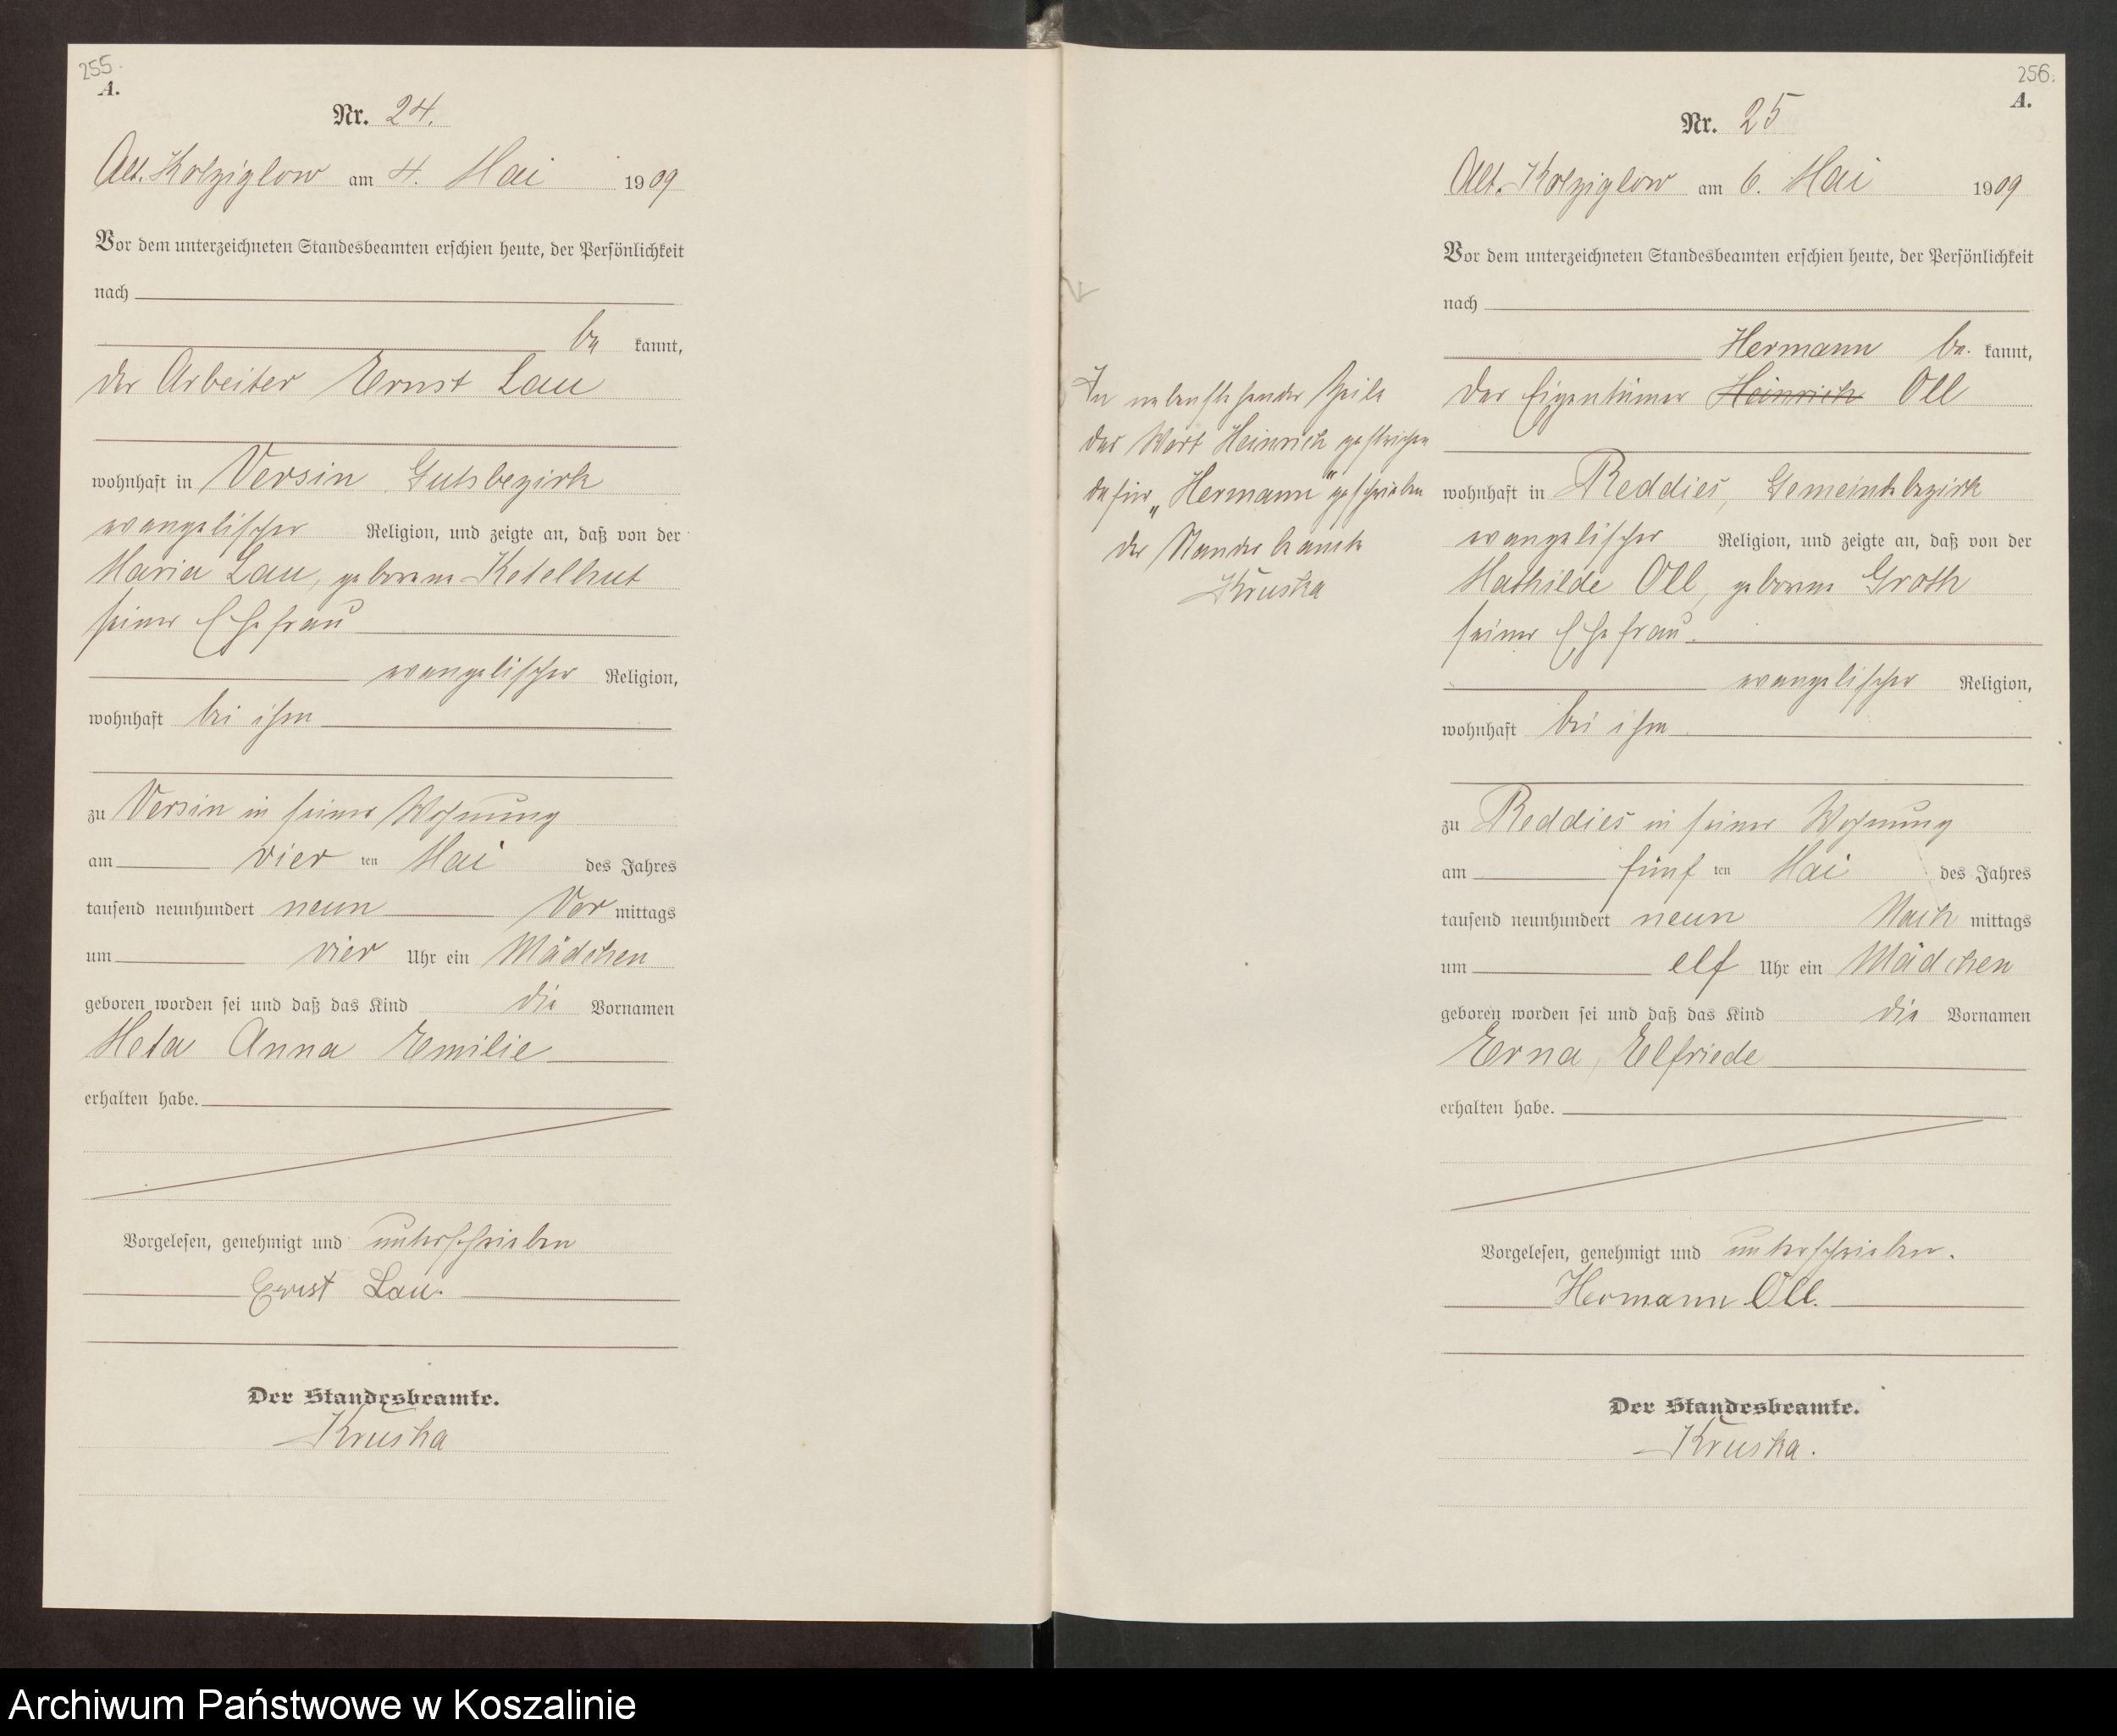 255.
A.
Nr. 24.
Alt. Kolziglow am 4. Mai 1909
Vor dem unterzeichneten Standesbeamten erschien heute, der Persönlichkeit
nach
be kannt,
der Arbeiter Ernst Lau
wohnhaft in Versin Gutsbezirk
evangelischer Religion, und zeigte an, daß von der
Maria Lau, geborene Ketelhut
seiner Ehefrau
evangelischer Religion,
wohnhaft bei ihm
zu Versin in seiner Wohnung
am vier ten Mai des Jahres
tausend neunhundert neun Vor mittags
um vier Uhr ein Mädchen
geboren worden sei und daß das Kind die Vornamen
Heta Anna Emilie
erhalten habe.
Vorgelesen, genehmigt und unterschrieben
Ernst Lau.
Der Standesbeamte.
Kruska
256.
A.
Nr. 25
Alt. Kolziglow am 6. Mai 1909
Vor dem unterzeichneten Standesbeamten erschien heute, der Persönlichkeit
nach
Hermann be. kannt,
der Eigentümer Heinrich Oll
wohnhaft in Reddies, Gemeindebezirk
evangelischer Religion, und zeigte an, daß von der
Mathilde Oll, geborene Groth
seiner Ehefrau.
evangelischer Religion,
wohnhaft bei ihm
zu Reddies in seiner Wohnung
am fünf ten Mai des Jahres
tausend neunhundert neun Nach mittags
um elf Uhr ein Mädchen
geboren worden sei und daß das Kind die Vornamen
Erna, Elfriede
erhalten habe.
Vorgelesen, genehmigt und unterschrieben.
Hermann Oll.
Der Standesbeamte.
Kruska.
In nebenstehender Zeile
das Wort Heinrich gestrichen
dafür „Hermann" geschrieben
der Standesbeamte
Kruska
Archiwum Państwowe w Koszalinie